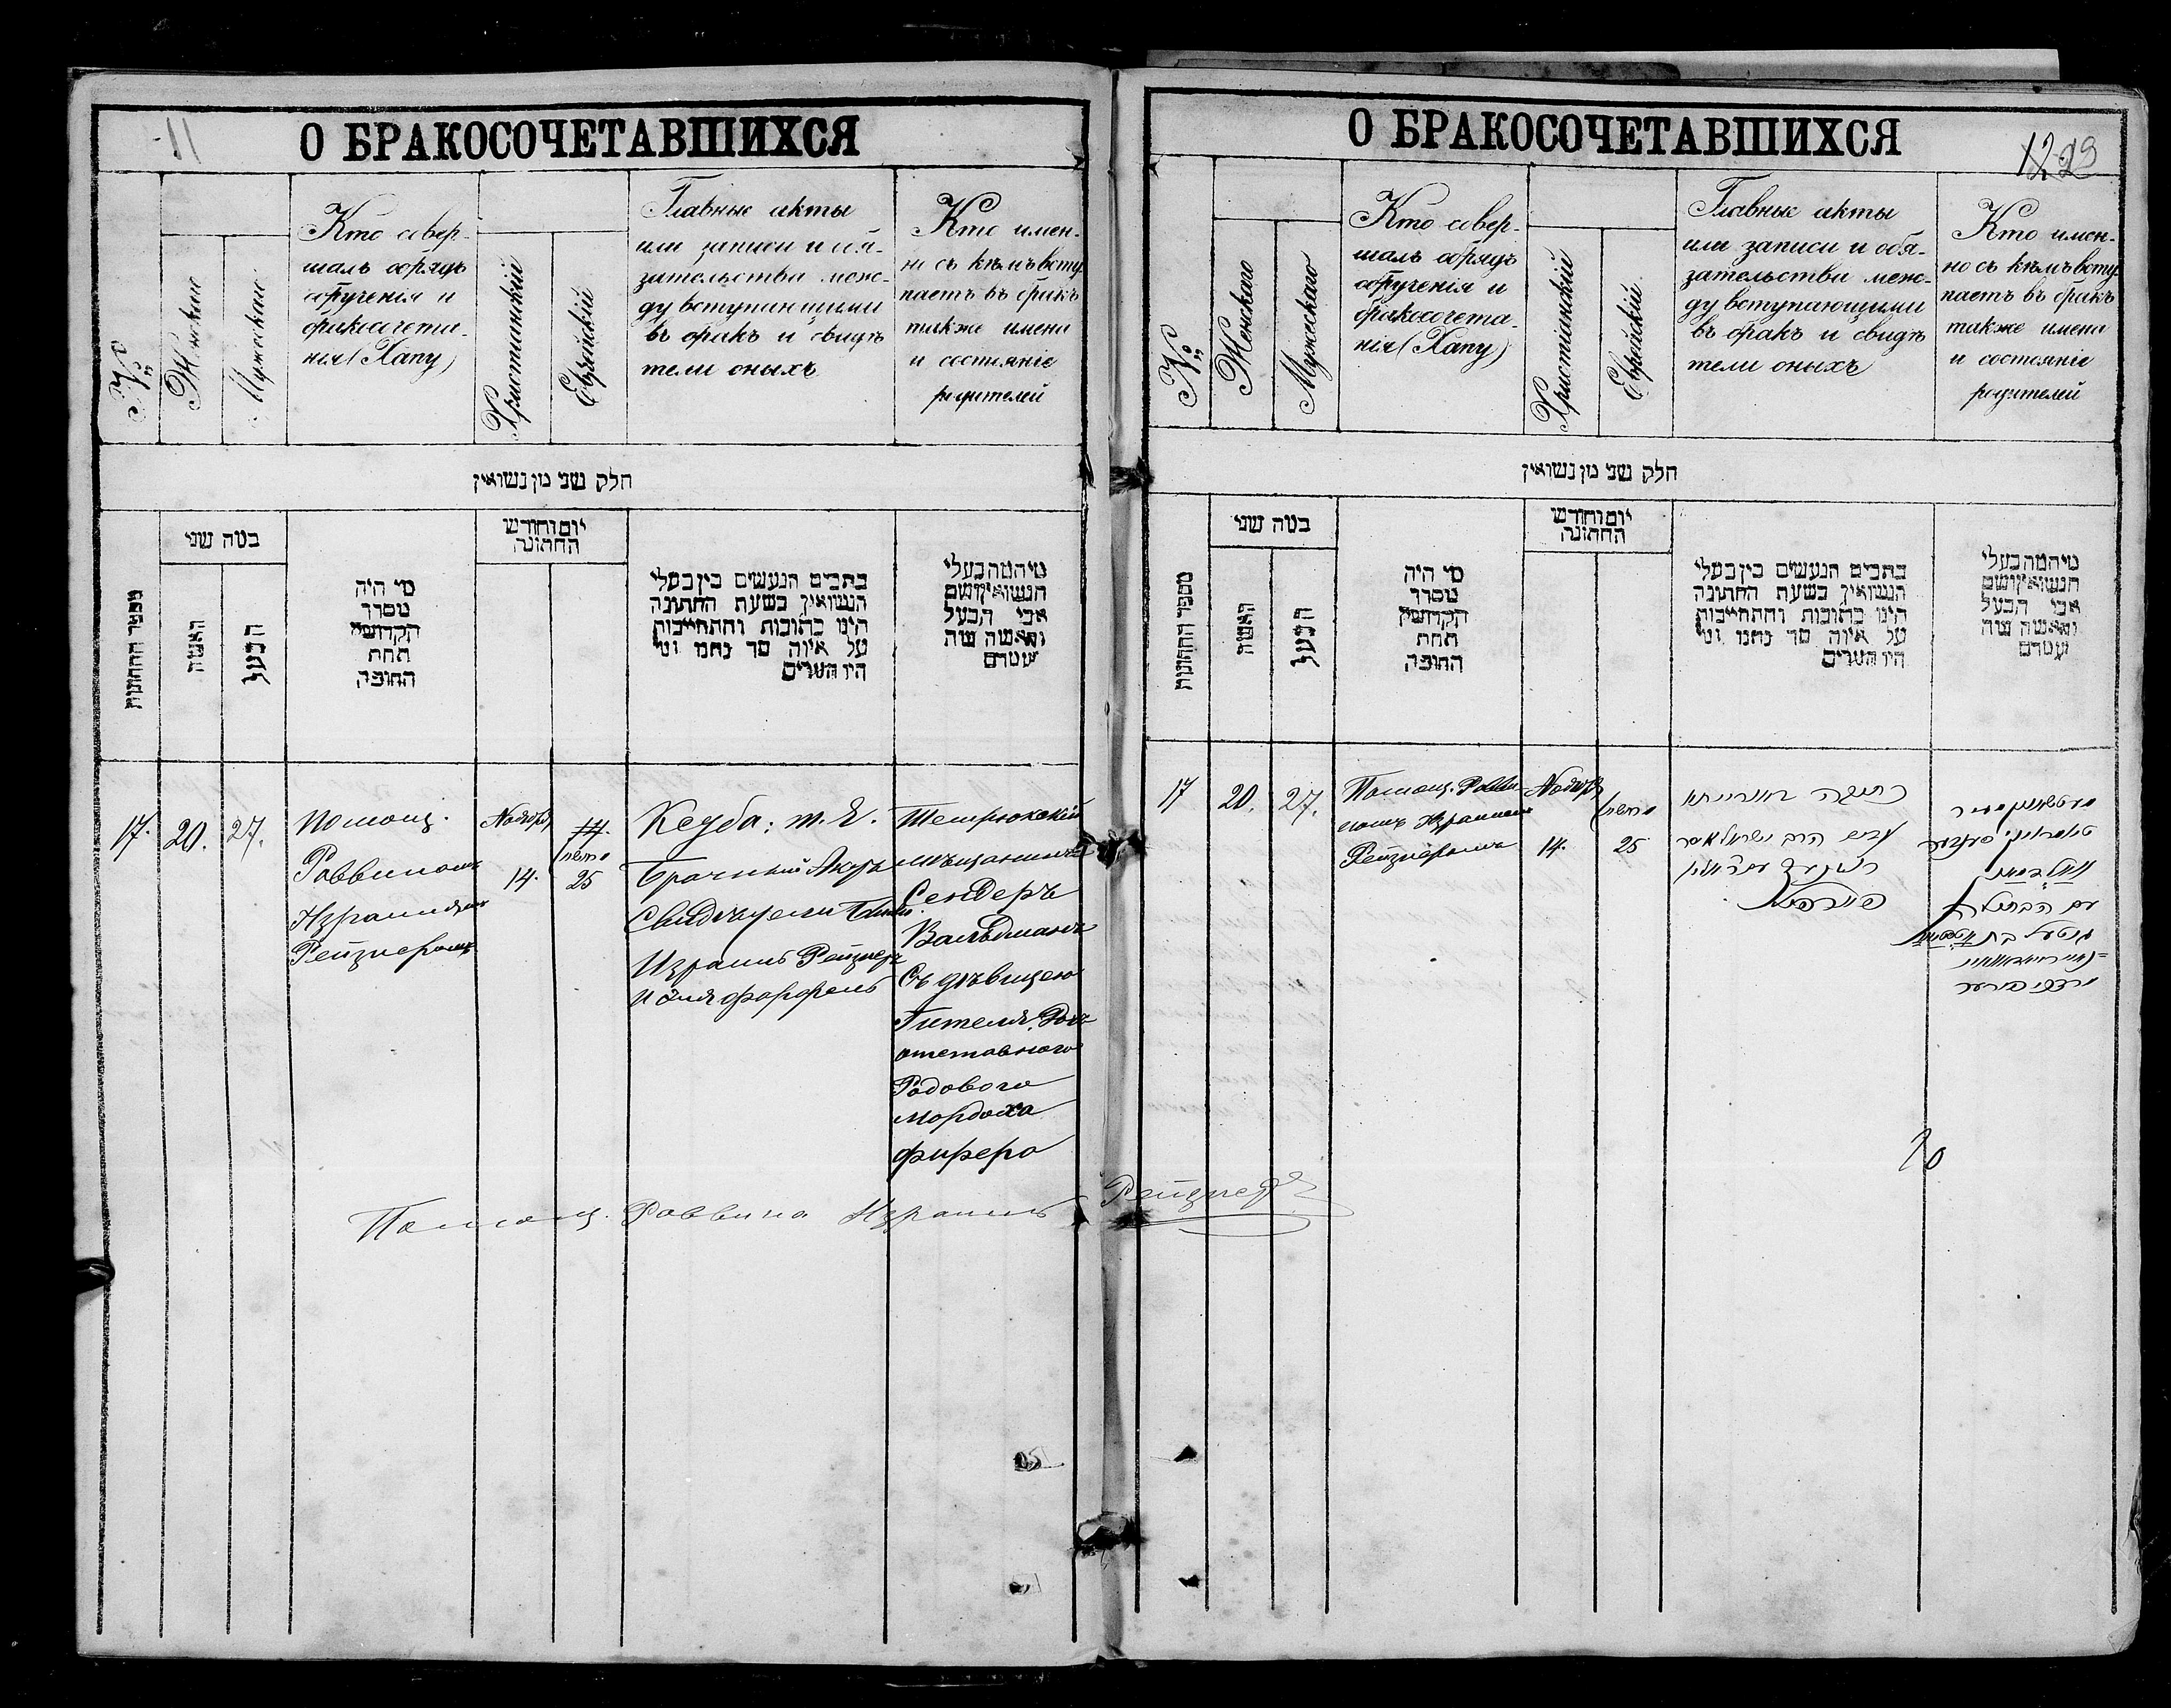 11
О БРАКОСОЧЕТАВШИХСЯ
№
Женскаго
Мужескаго
Кто совер-
шалъ обрядъ
обрученія и
бракосочета-
нія (Хапу)
Христіанскій
Еврейскій
Главные акты
или записи и обя-
зательства меж-
ду вступающими
въ бракъ и свидѣ
тели оныхъ
Кто имен-
но съ кѣмъ всту-
паетъ въ бракъ
также имена
и состояніе
родителей
חלק שני מן נשואין
מספר החתונות
בטה שני
האשה
הבעל
מי היה
מסדר
הקדושין
תחת
החופה
יום וחודש
החתונה
כתבים הנעשים בין בעלי
הנשואין בשעת החתונה
היינו כתובות והתחייבות
על איזה סך נחנו ומי
היו העדים
מיהמה בעלי
הנשואין ושם
אבי הבעל
והאשה ומה
עטרם
17.
20.
27.
Помощ.
Раввиномъ
Израилемъ
Рейзнеромъ
Ноября
14.
25
Кеуба: т. Е.
Брачный Актъ
Свидѣтели были
Израиль Рейзнеръ
и Эля Фарфель
Темрюкскій
мѣщанинъ
Сендеръ
Вальдманъ
Съ дѣвицею
Гителя, Дочь
отставного
Рядового
Мордоха
Фифера
Помощ. Раввина Израиль Рейзнеръ
О БРАКОСОЧЕТАВШИХСЯ
12
29
№
Женскаго
Мужескаго
Кто совер-
шалъ обрядъ
обрученія и
бракосочета-
нія (Хапу)
Христіанскій
Еврейскій
Главные акты
или записи и обя-
зательства меж-
ду вступающими
въ бракъ и свидѣ
тели оныхъ
Кто имен-
но съ кѣмъ всту-
паетъ въ бракъ
также имена
и состояніе
родителей
חלק שני מן נשואין
מספר החתונות
בטה שני
האשה
הבעל
מי היה
מסדר
הקדושין
תחת
החופה
יום וחודש
החתונה
כתבים הנעשים בין בעלי
הנשואין בשעת החתונה
היינו כתובות והתחייבות
על איזה סך נחנו ומי
היו העדים
מיהמה בעלי
הנשואין ושם
אבי הבעל
והאשה ומה
עטרם
17
20.
27.
Помощ. Равви-
номъ Израилемъ
Рейзнеромъ
Ноября
14.
25
כתובה דאורייתא
עדים הרב ישראל
עם הבתולה
גיטעל בת
20